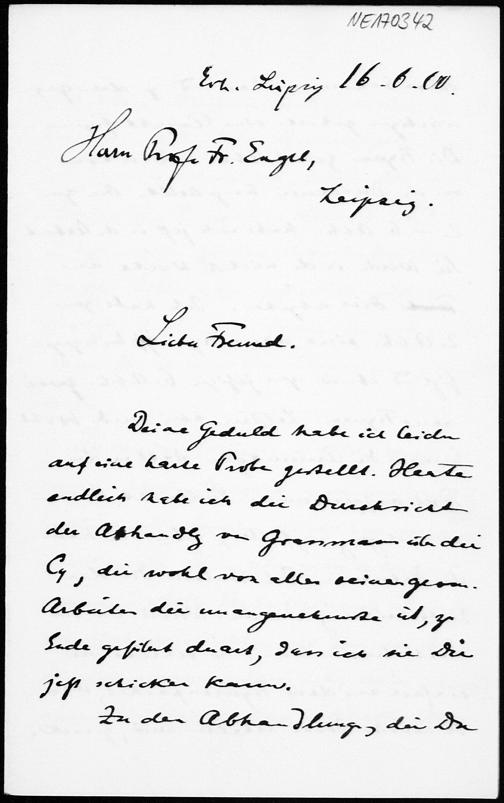 NE170342
Erh. Leipzig 16.6.00.
Herrn Prof. Fr. Engel,
Leipzig.
Lieber Freund.
Deine Geduld habe ich leider
auf eine harte Probe gestellt. Heute
endlich habe ich die Durchsicht
der Abhandlg von Grassmann über die
C₄, die wohl von allen seinen geom.
Arbeiten die unangenehmste ist, zu
Ende geführt derart, dass ich sie Dir
jetzt schicken kann.
Zu den Abhandlungen, die Du